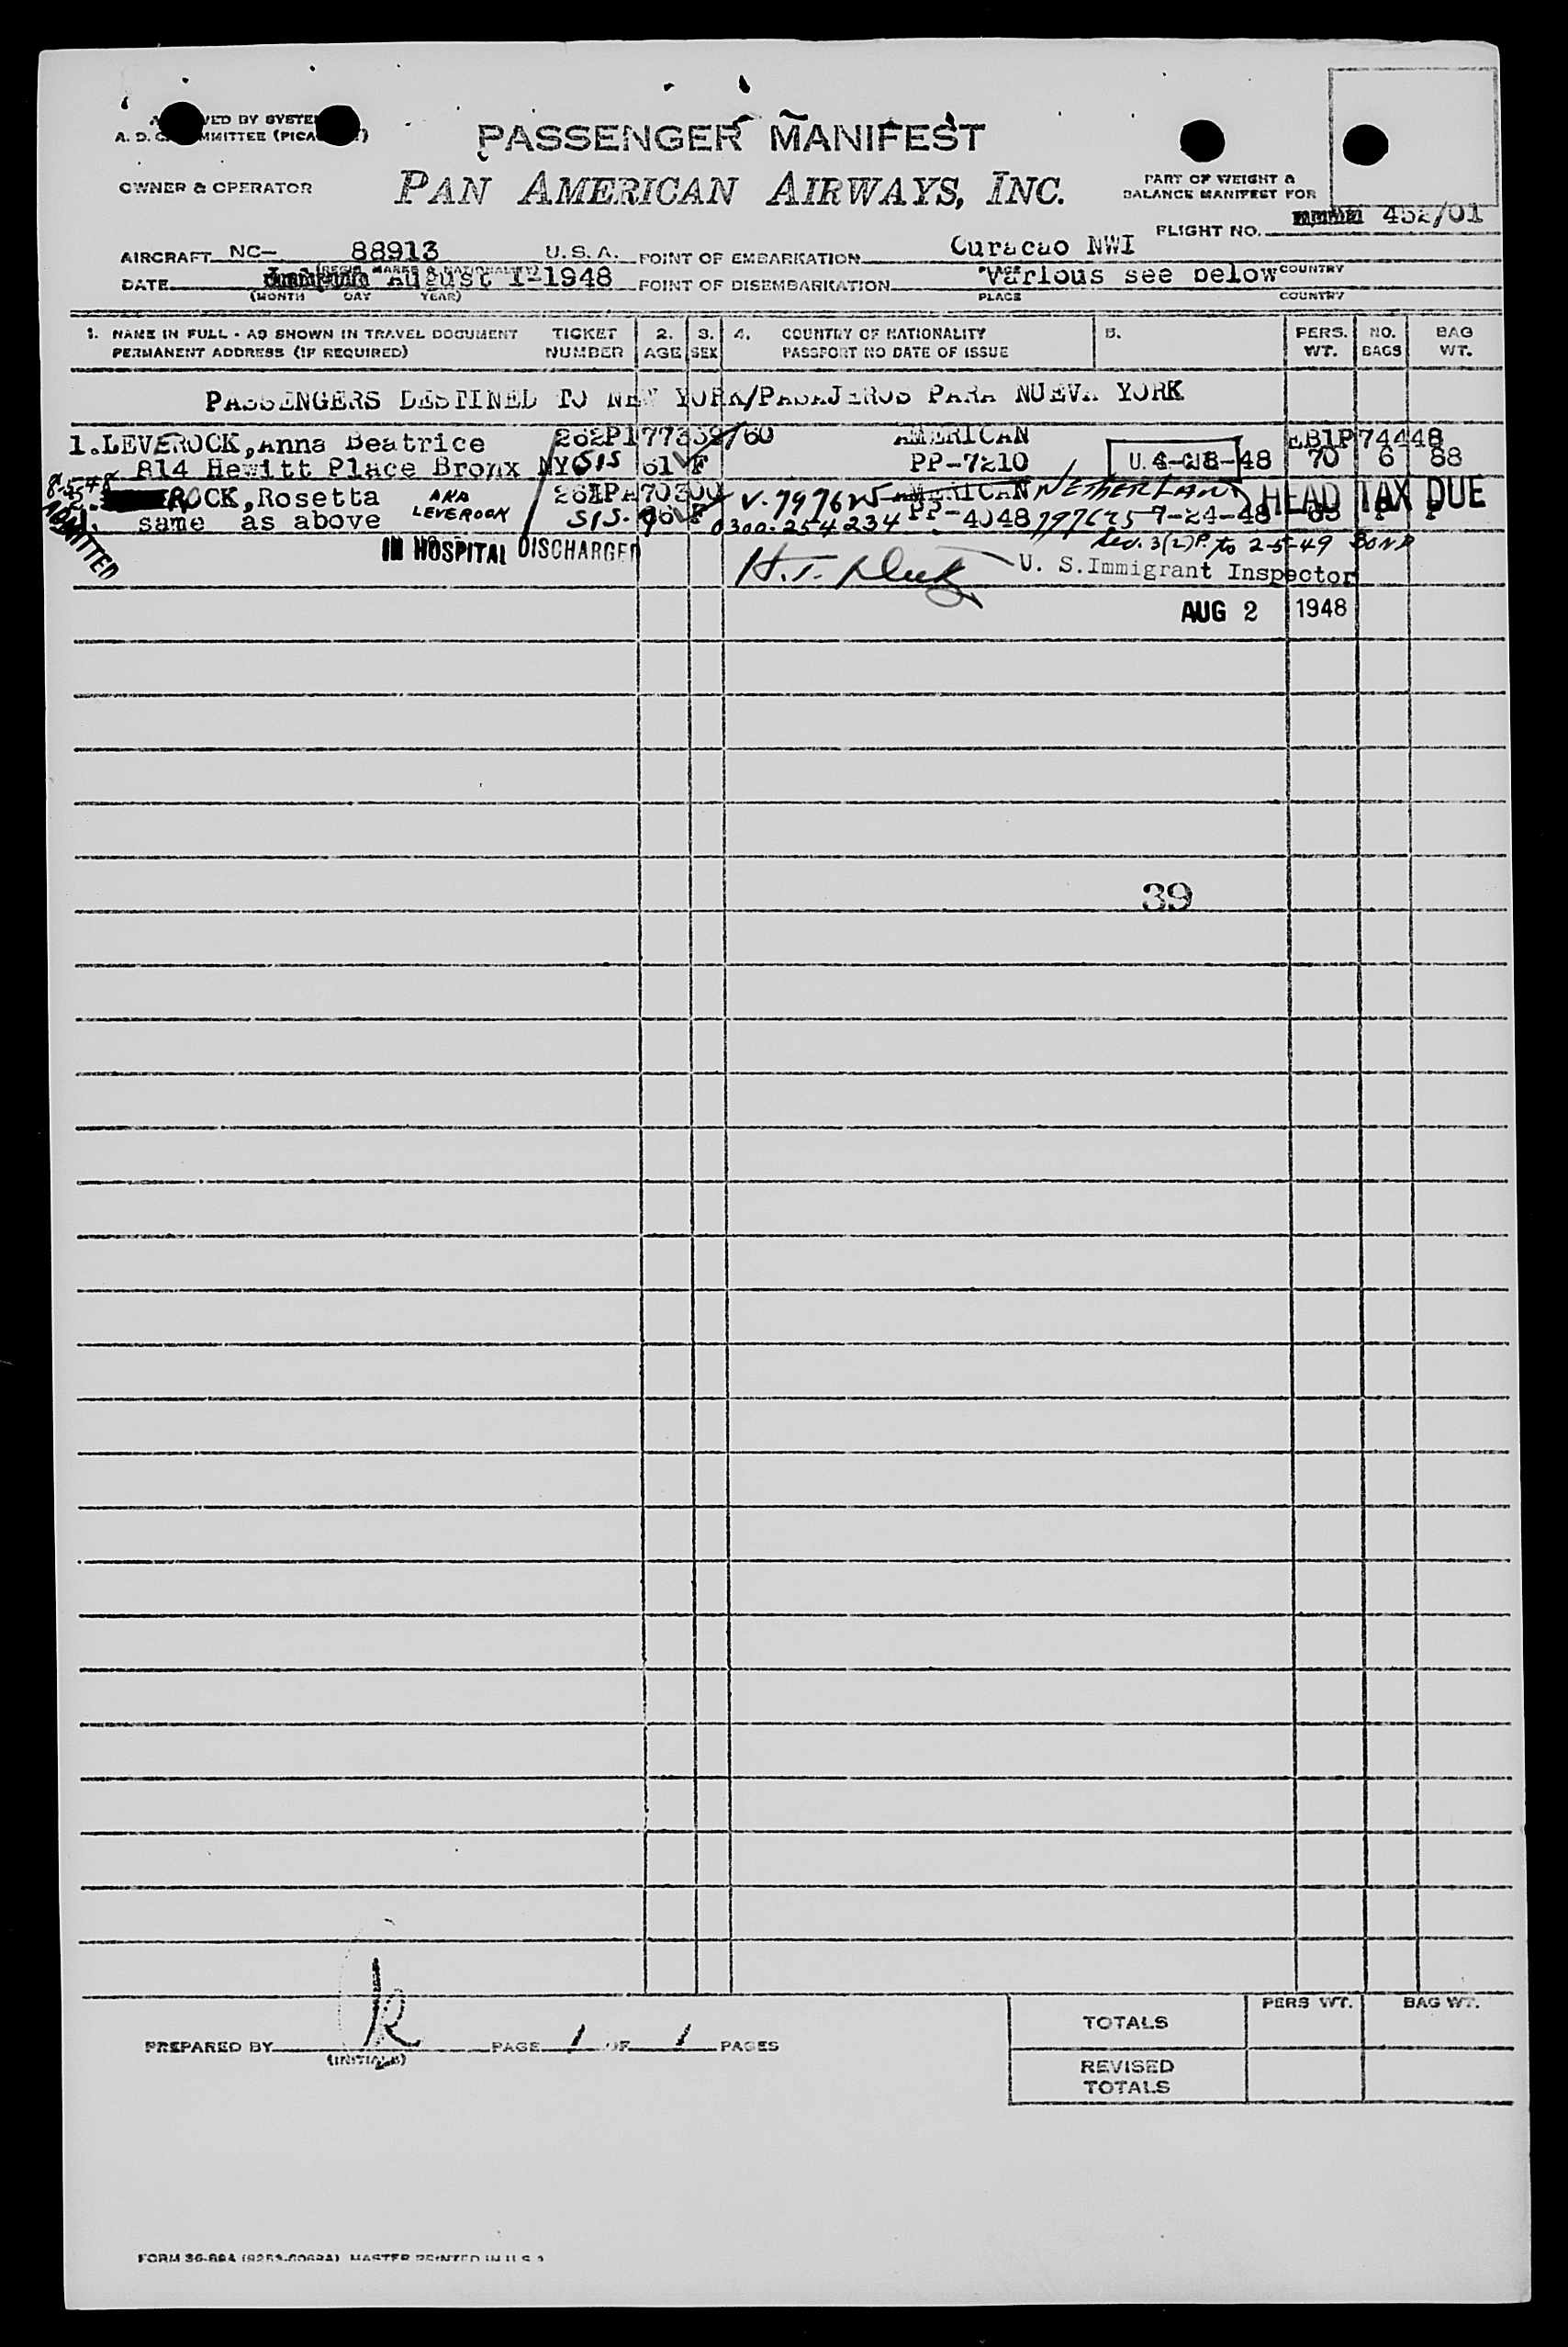 PASSENGER MANIFEST
PAN AMERICAN AIRWAYS, INC.
A. D. MMITTEE
OWNER & OPERATOR
PART OF WEIGHT &
BALANCE MANIFEST FOR
FLIGHT NO. 452/01
AIRCRAFT NC- 88913 U.S.A. POINT OF EMBARKATION Curacao NWI
DATE August 1-1948 POINT OF DISEMBARKATION Various see below
(MONTH DAY YEAR) PLACE COUNTRY
1. NAME IN FULL - AS SHOWN IN TRAVEL DOCUMENT TICKET 2. 3. 4. COUNTRY OF NATIONALITY 5. PERS. NO. BAG
PERMANENT ADDRESS (IF REQUIRED) NUMBER AGE SEX PASSPORT NO DATE OF ISSUE WT. BAGS WT.
PASSENGERS DESTINED TO NEW YORK/PASAJEROS PARA NUEVA YORK
1. LEVEROCK, Anna Beatrice AMERICAN
814 Hewitt Place Bronx NY SIS 61 F PP-7210 48 70 6 88
8-5-48 ROCK, Rosetta AKA AMERICAN NETHERLAND HEAD TAX DUE
ADMITTED same as above LEVEROCK SIS. F 0300.254234 PP-4048 7-24-48
to 2-5-49 BOND
IN HOSPITAL DISCHARGED U. S. Immigrant Inspector
AUG 2 1948
39
PREPARED BY k PAGE 1 OF 1 PAGES
(INITIALS)
PERS WT. BAG WT.
TOTALS
REVISED
TOTALS